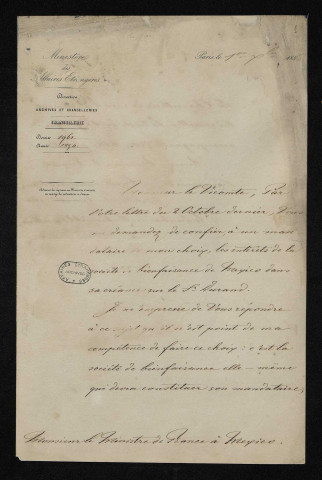 Ministère
des
Affaires Etrangères
Direction
des
ARCHIVES ET CHANCELLERIES
CHANCELLERIE
Paris le 1er
Monsieur le Vicomte, par
votre lettre du 2 Octobre dernier, Vous
me demandez de confier, à un man
dataire de mon choix, les intérêts de la
société de bienfaisance de Mexico dans
sa créance sur le Sr. Durand.
Je m'empresse de Vous répondre
à ce sujet qu'il n'est point de ma
compétence de faire ce choix : c'est la
société de bienfaisance elle-même
qui devra constituer son mandataire;
Monsieur le Ministre de France à Mexico.